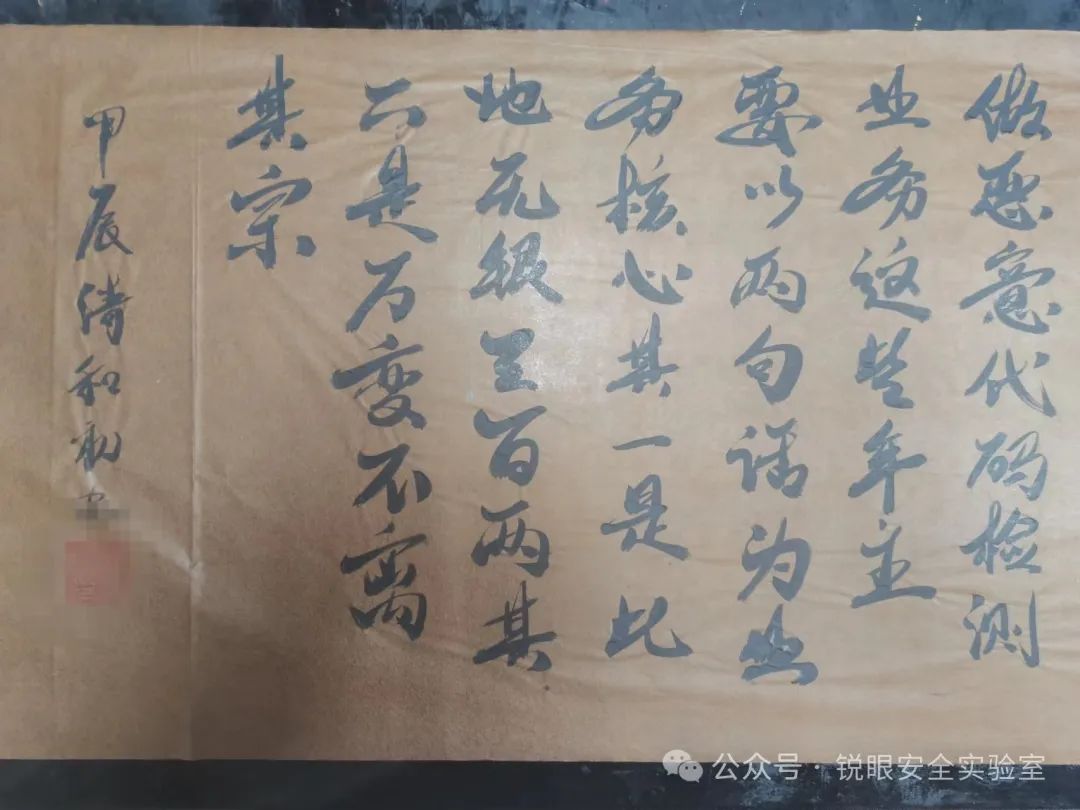 做恶意代码检测
业务这些年主
要以两句话为业
务核心其一是此
地无银三百两其
二是万变不离
其宗
甲辰倚和
公众号·锐眼安全实验室